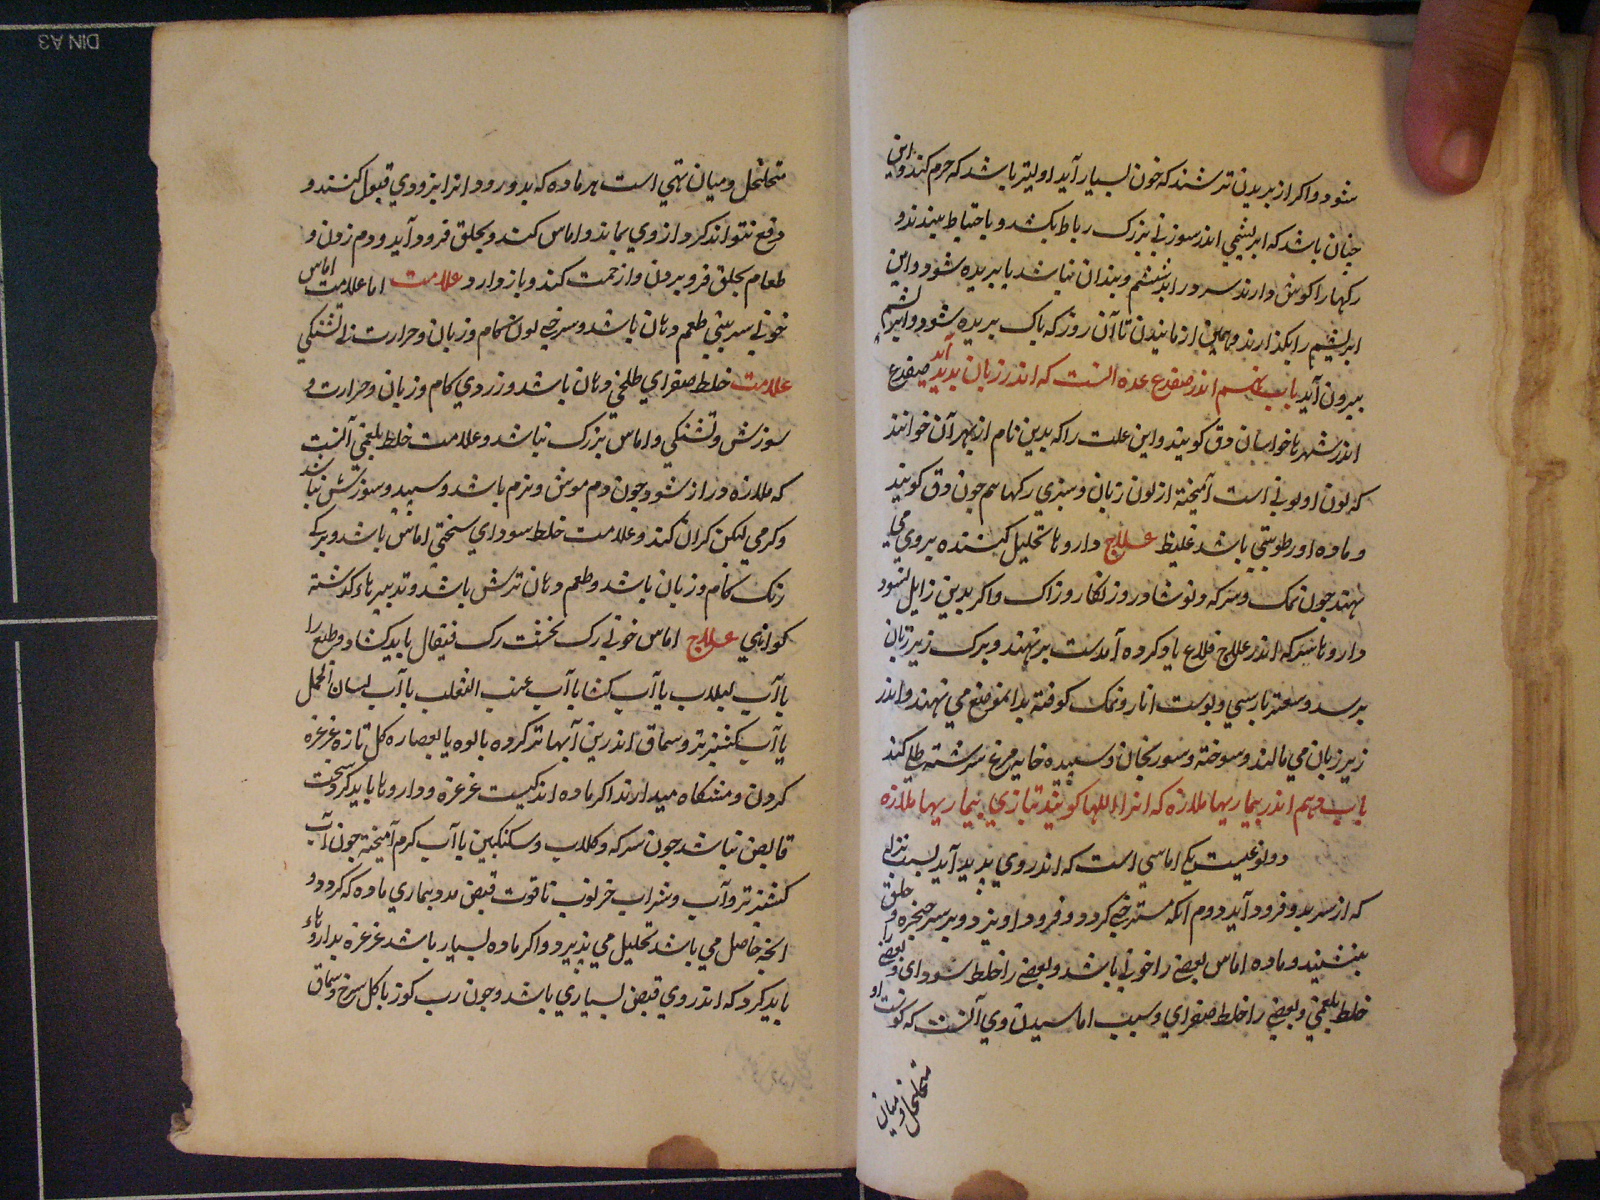 شود و اکر از بریدن ترشند که خون بسیار آید اولیتر باشد که خرم کنند و این
چنان باشد که ابریشمی اندر سوزنی بزرک رباط بکشد و باحتیاط ببندند و
رکها را کوش دارند سر در ابریشم و بندان نباشد تا بریده شود و این
ابریشم را بکذارند و همچنین از مانیدن تا آن روز که پاک بریده شود و ابریشم
بیرون آید باب نهم اندر ضفدع غده الست که اندر زبان بدید آید ضفدع
اندر شهرها خراسان وق کویند و این علت را که بدین نام از بهر آن خوانند
که لون او لونی است آمیخته از لون زبان و سبزی رکها هم جون وق کویند
و ماده او رطوبتی باشد غلیظ علاج داروها تحلیل کننده بروی می
نهند جون نمک و سرکه و نوشادر و زنکار و زاک و اکر بدین زایل نشود
داروها سرکه اندر علاج قلاع یاد کرده آمدست بر نهند و برک زیر زبان
برسد و سعتر پارسی و پوست انار و نمک کوفته بدان موضع می نهند و اندر
زیر زبان می مالند و سوخته و سورنجان و سپیده خایه مرغ سرشته طلی کنند
باب دهم اندر بیماریها ملازه که انرا اللهاة کویند بتازی بیماریها ملازه
دو نوعیست یکی اماسی است که اندر وی بدید آید بسبب نزله
که از سر بدو فرود آید دوم آنکه مسترخی کردد و فرود اویزد و بر سر حنجره و حلق
بنشیند و ماده اماس بعضی را خونی باشد و بعضی را خلط سودای و بعضی را
خلط بلغمی و بعضی را خلط صفرای و سبب اماسیدن وی آنست که کوشت او
متخلخل و میان
متخلخل و میان تهی است هر ماده که بدو رود انرا بزودی قبول کنند و
دفع نتواند کرد از وی بماند و اماس کند و بحلق فرود آید و دم زدن و
طعام بحلق فرو بردن را زحمت کند و باز دارد علامت اما علامت اماس
خونی سر بینی طعم دهان باشد و سرخی لون کام و زبان و حرارت و تشنکی
علامت خلط صفرای طلخی دهان باشد و زردی کام و زبان و حرارت و
سوزش و تشنکی و اماس بزرک نباشد و علامت خلط بلغمی آنست
که ملازه دراز شود جون دم موش و نرم باشد و سپید و سوزش نباشد
و کرمی لیکن کران کند و علامت خلط سودای سختی اماس باشد و تیرکی
رنک کام و زبان باشد و طعم دهان ترش باشد و تدبیرهاء کذشته
کواهی علاج اماس خونی رک نخست رک قیفال باید کشاد و طبع را
باآب لبلاب یا آب کشنا یا آب عنب الثعلب یا آب لسان الحمل
یا آب کشنیز تر و سماق اندرین آبها تر کرده پالوده یا بعصاره کل تازه غرغره
کردن و مشکاه میدارند اکر ماده اندکیست غرغره و داروها باید کرد سخت
قابض نباشد جون سرکه و کلاب و سکنکبین با آب کرم آمیخته جون آب
کشنیز تر و آب و شراب خرنوب تا قوت قبض مدد بیماری ماده که کردد و
انجه حاصل می باشد تحلیل می پذیرد و اکر ماده بسیار باشد غرغره بداروهاء
باید کرد که اندر وی قبض بسیاری باشد و جون رب کوز با کل سرخ و سماق
DIN A3